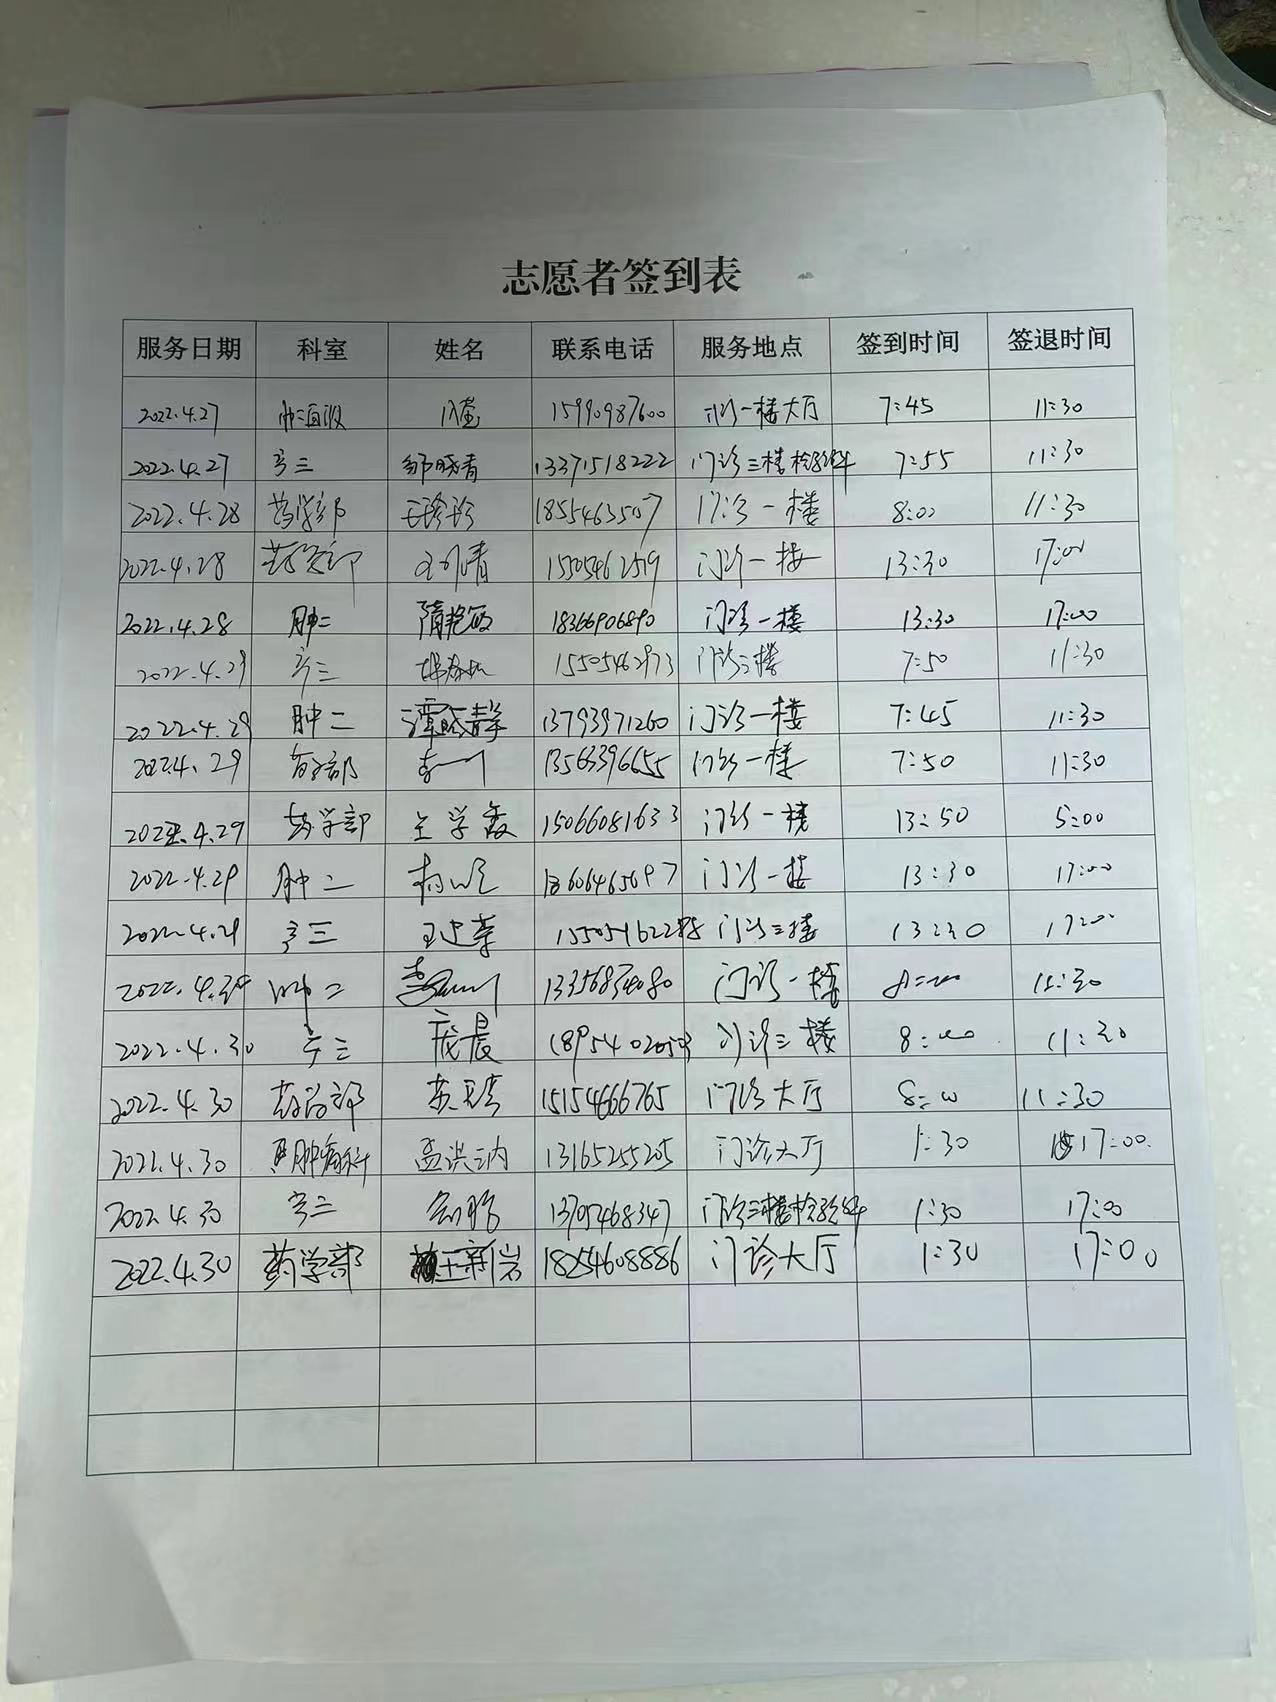 志愿者签到表
服务日期 科室 姓名 联系电话 服务地点 签到时间 签退时间
2022.4.27 15990987600 门诊一楼大厅 7:45 11:30
2022.4.27 三 邹晓青 13371518222 门诊三楼检验科 7:55 11:30
2022.4.28 药学部 王珍珍 18554635507 门诊一楼 8:00 11:30
2022.4.28 药学部 15505462519 门诊一楼 13:30 17:00
2022.4.28 肿二 隋艳 18366906890 门诊一楼 13:30 17:00
2022.4.29 三 15505462973 门诊三楼 7:50 11:30
2022.4.29 肿二 谭晓静 13793971260 门诊一楼 7:45 11:30
2022.4.29 药学部 李 13563396655 门诊一楼 7:50 11:30
2022.4.29 药学部 王学霞 15066081633 门诊一楼 13:50 5:00
2022.4.29 肿二 杨 门诊一楼 13:30 17:00
2022.4.29 三 王 门诊三楼 13:30 17:00
肿二 李 13356834080 门诊一楼 8:00 11:30
2022.4.30 三 庞晨 门诊三楼 8:00 11:30
2022.4.30 药学部 苏 15154666765 门诊大厅 8:00 11:30
2022.4.30 肿瘤科 孟洪 13165255205 门诊大厅 1:30 17:00
2022.4.30 三 13705468347 门诊三楼检验科 1:30 17:00
2022.4.30 药学部 王新岩 18254608886 门诊大厅 1:30 17:00